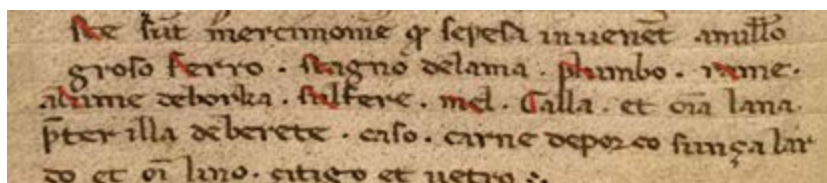 ste sūt mercimonie q̄ sepesa inuenēt amilło
groso ferro . stagno delama . plumbo . rame .
alume deborka . sulfere . mel . Galla . et oīa lana .
p̄ter illa deberete . caso . carne deporco sunça lar
do et oī lino . sitigo et uetro